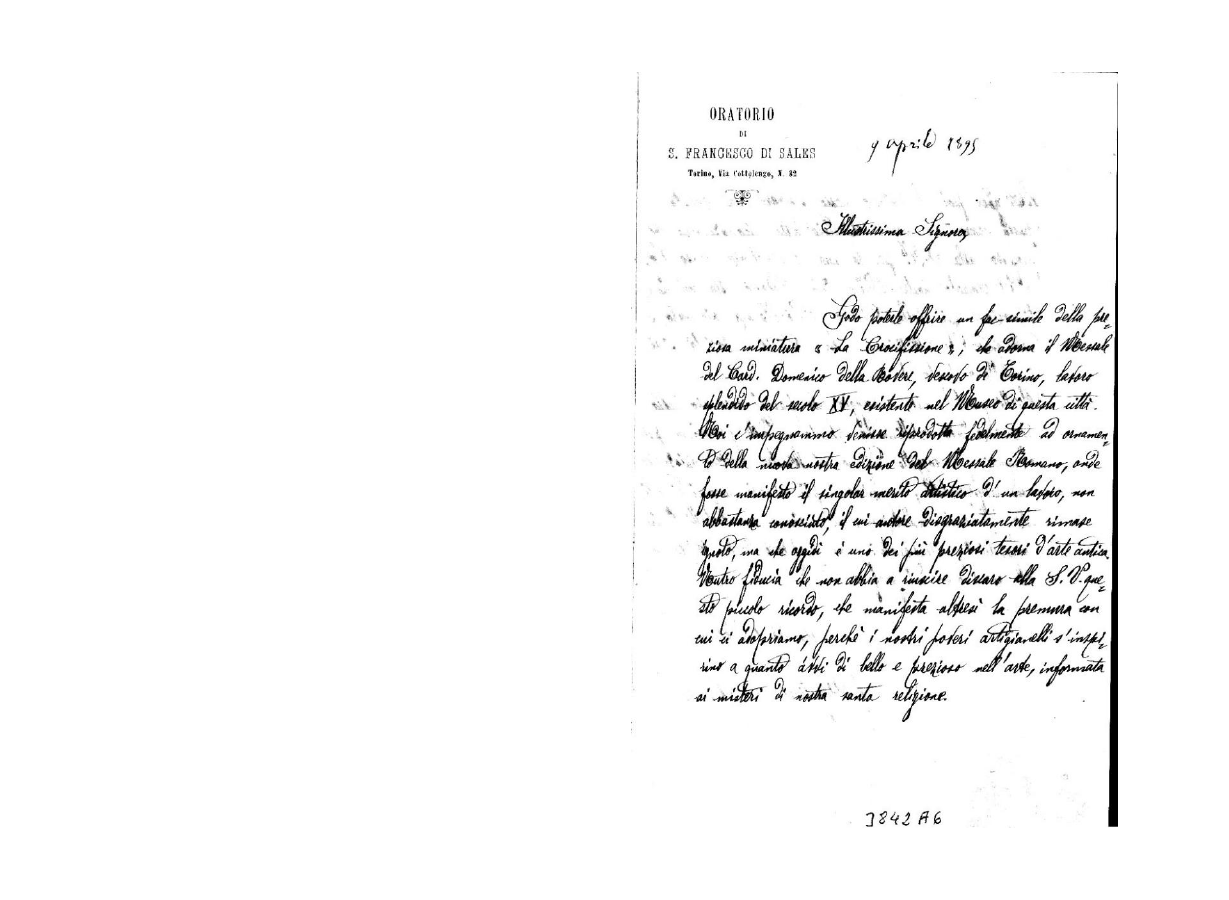 ORATORIO
DI
S. FRANCESCO DI SALES
Torino, Via Cottolengo, N. 32
9 aprile 1895
Illustrissima Signora,
Godo poterle offrire un fac-simile della pre=
ziosa miniatura « La Crocifissione »; che adorna il Messale
del Card. Domenico della Rovere, vescovo di Torino, lavoro
splendido del secolo XV, esistente nel Museo di questa città.
Noi c'impegnammo venisse riprodotta fedelmente ad ornamen-
to della nuova nostra edizione del Messale Romano, onde
fosse manifesto il singolar merito artistico d'un lavoro, non
abbastanza conosciuto, il cui autore disgraziatamente rimase
ignoto, ma che oggidì è uno dei più preziosi tesori d'arte antica.
Nutro fiducia che non abbia a riuscire discaro alla S. V. que=
sto piccolo ricordo, che manifesta altresì la premura con
cui ci adopriamo, perchè i nostri poveri artigianelli s'inspi-
rino a quanto avvi di bello e prezioso nell'arte, informata
ai misteri di nostra santa religione.
3842 A6